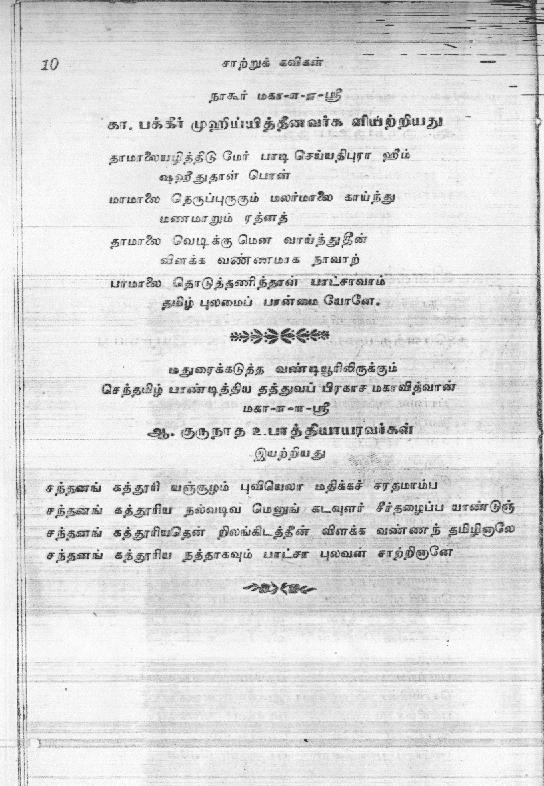 10
சாற்றுக் கவிகள்
நாகூர் மகா-௱-௱-ஸ்ரீ
கா. பக்கீர் முஹிய்யித்தீனவர்க ளியற்றியது
தாமாலையழித்திடு மேர் பாடி செய்யதிபுரா ஹீம்
ஷஹீதுதாள் பொன்
மாமாலை தெருப்புருகும் மலர்மாலை காய்ந்து
மணமாறும் ரத்னத்
தாமாலை வெடிக்கு மென வாய்ந்துதீன்
விளக்க வண்ணமாக நாவாற்
பாமாலை தொடுத்தணிந்தான் பாட்சாவாம்
தமிழ் புலமைப் பான்மை யோனே.
மதுரைக்கடுத்த வண்டியூரிலிருக்கும்
செந்தமிழ் பாண்டித்திய தத்துவப் பிரகாச மகாவித்வான்
மகா-௱-௱-ஸ்ரீ
ஆ. குருநாத உபாத்தியாயரவர்கள்
இயற்றியது
சந்தனங் கத்தூரி யஞ்சூழம் புவியெலா மதிக்கச் சரதமாம்ப
சந்தனங் கத்தூரிய நல்வடிவ மெனுங் கடவுளர் சீர்தழைப்ப யாண்டுஞ்
சந்தனங் கத்தூரியதென் றிலங்கிடத்தீன் விளக்க வண்ணந் தமிழினாலே
சந்தனங் கத்தூரிய நத்தாகவும் பாட்சா புலவன் சாற்றினானே